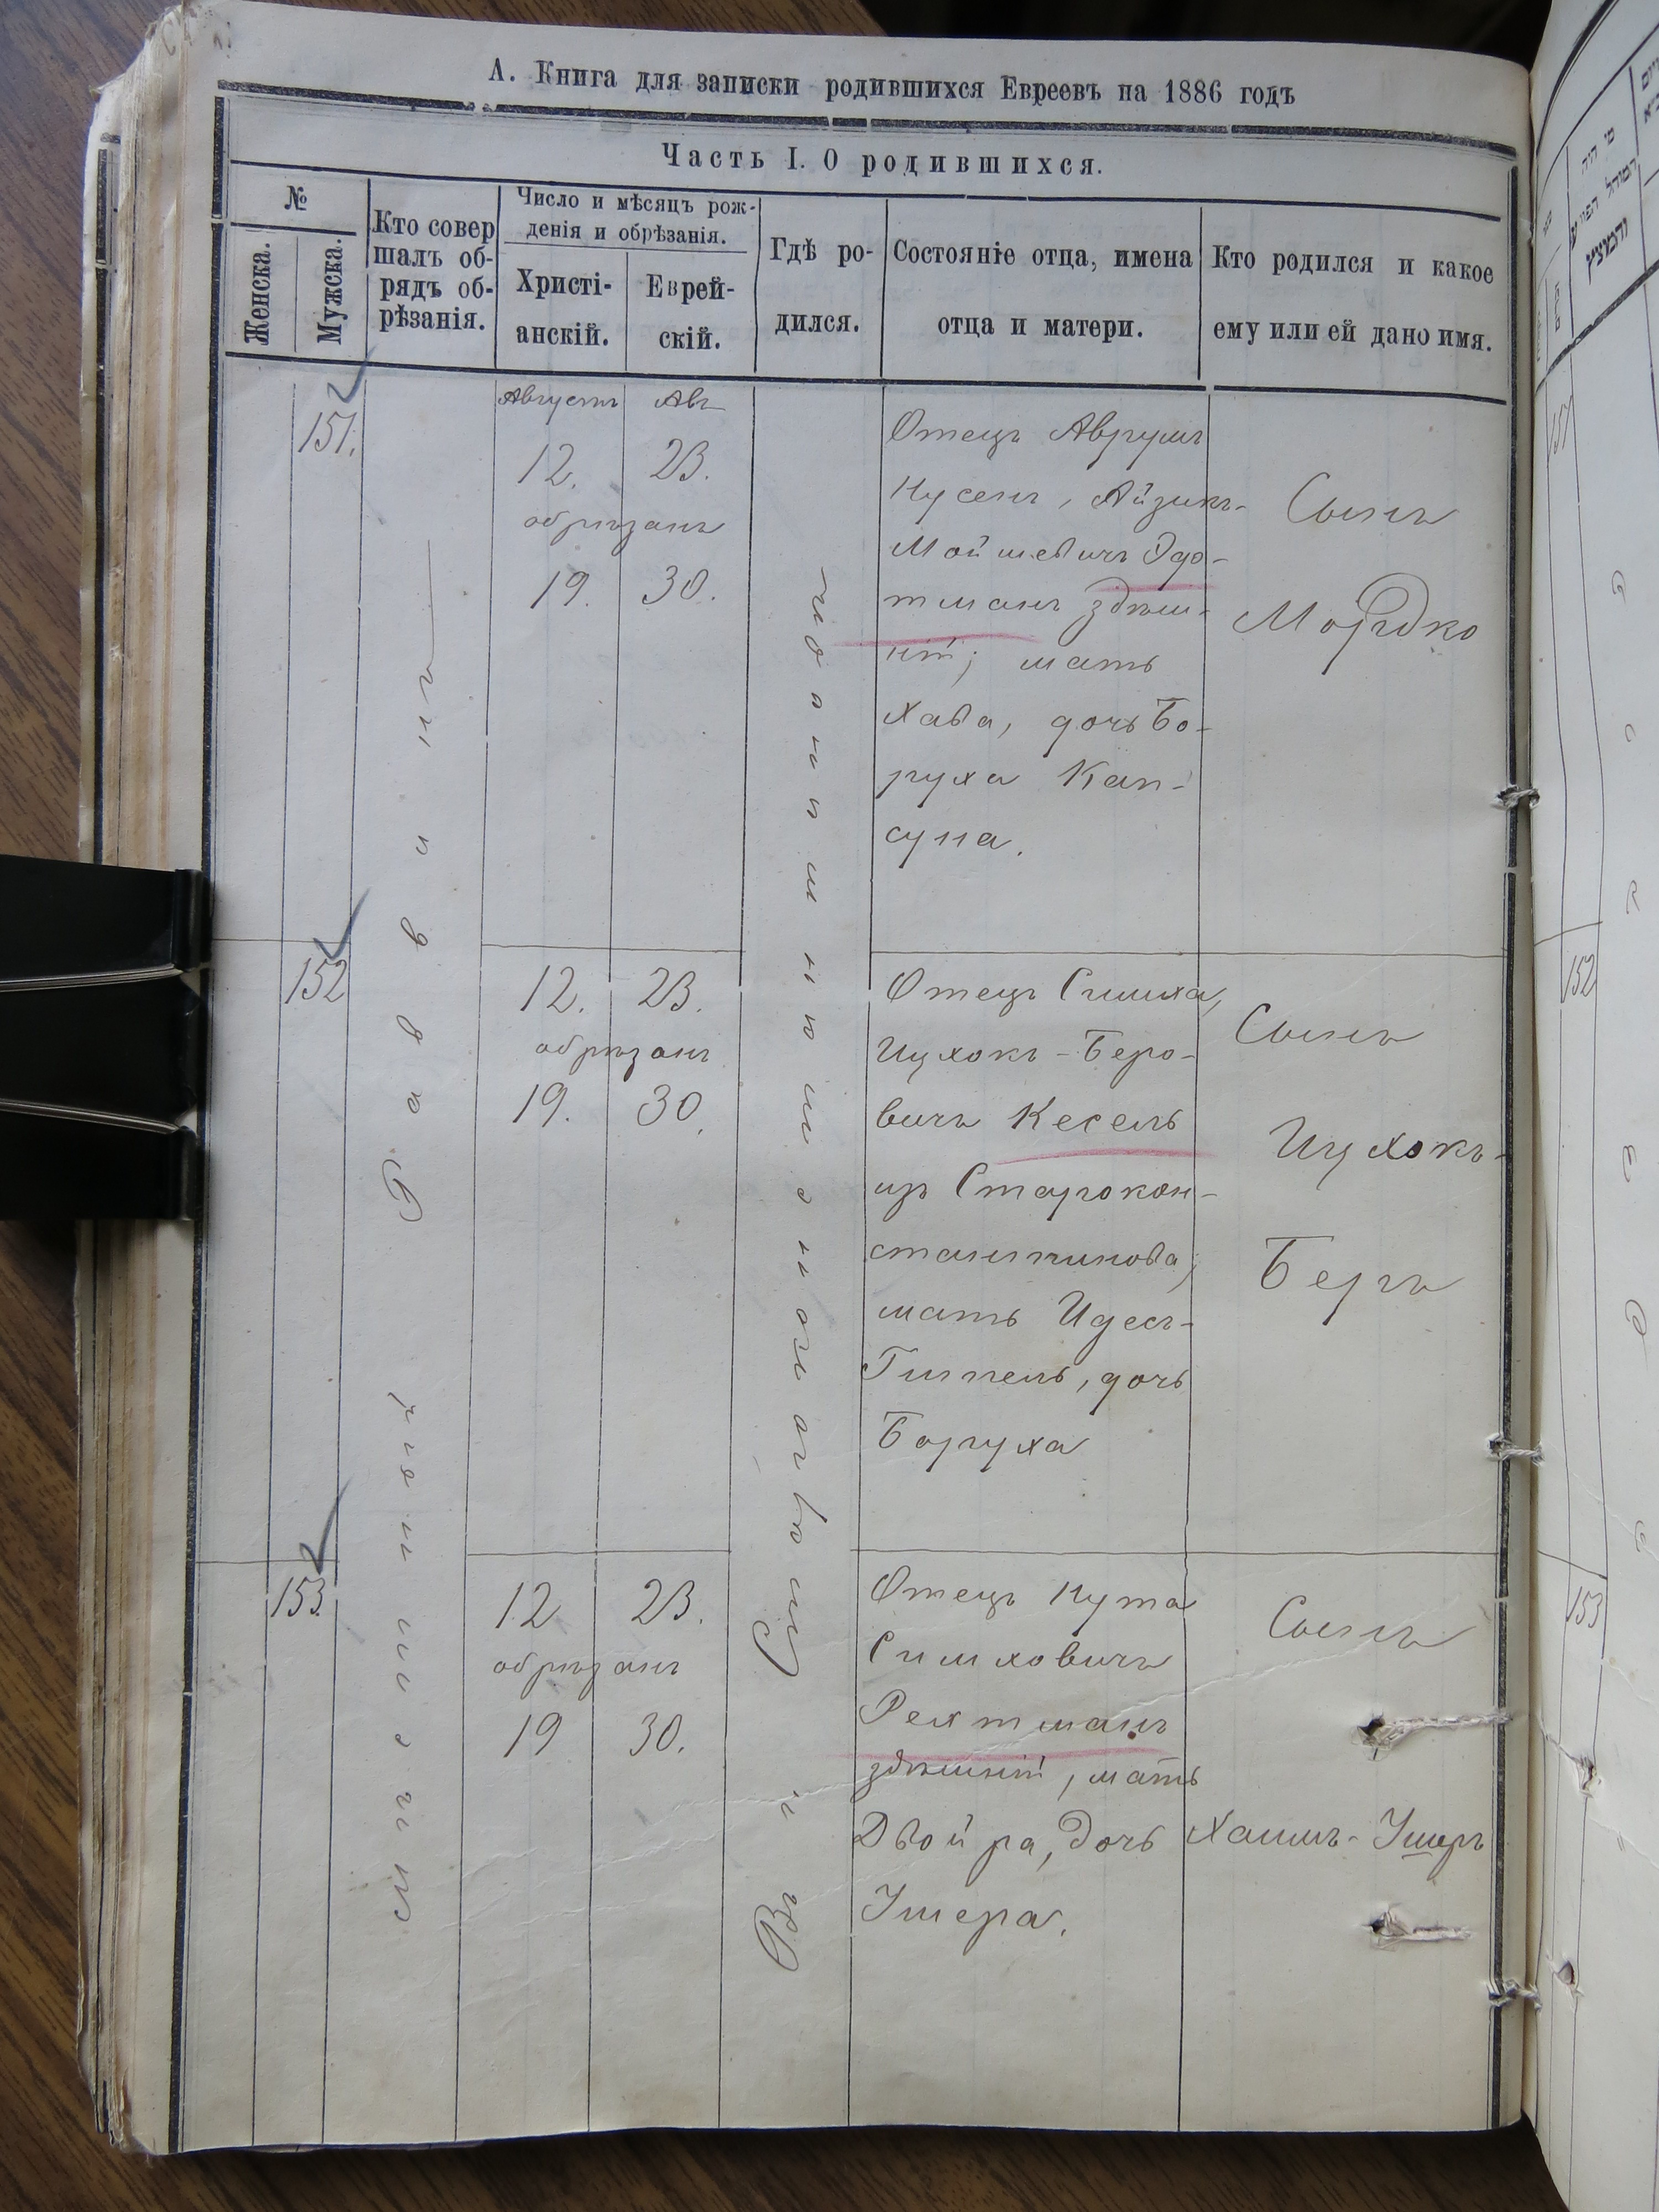 А. Книга для записки родившихся Евреевъ на 1886 годъ
Часть I. О родившихся.
№
Женска.
Мужска.
Кто совер
шалъ об-
рядъ об-
рѣзанія.
Число и мѣсяцъ рож-
денія и обрѣзанія.
Христі-
анскій.
Еврей-
скій.
Гдѣ ро-
дился.
Состояніе отца, имена
отца и матери.
Кто родился и какое
ему или ей дано имя.
151.
Августъ Авъ
12. 23.
обрѣзанъ
19. 30.
Отецъ Аврумъ
Нусенъ, Айзикъ-
Мойшевичъ
здѣш-
ній; мать
Хава, дочь Бо-
руха Кап-
суна.
Сынъ
Мордко
152
12. 23.
обрѣзанъ
19. 30.
Отецъ Симха,
Ицхокъ-Беро-
вичъ Кесель
изъ Старокон-
стантинова;
мать Идесъ-
Гитель, дочь
Боруха
Сынъ
Ицхокъ-
Беръ
153.
12 23.
обрѣзанъ
19 30.
Отецъ Нута
Симховичъ
Рехтманъ
здѣшній, мать
Двойра, дочь
Ушера.
Сынъ
Хаимъ-Ушеръ
Въ г. Староконстантиновѣ
151
152
153